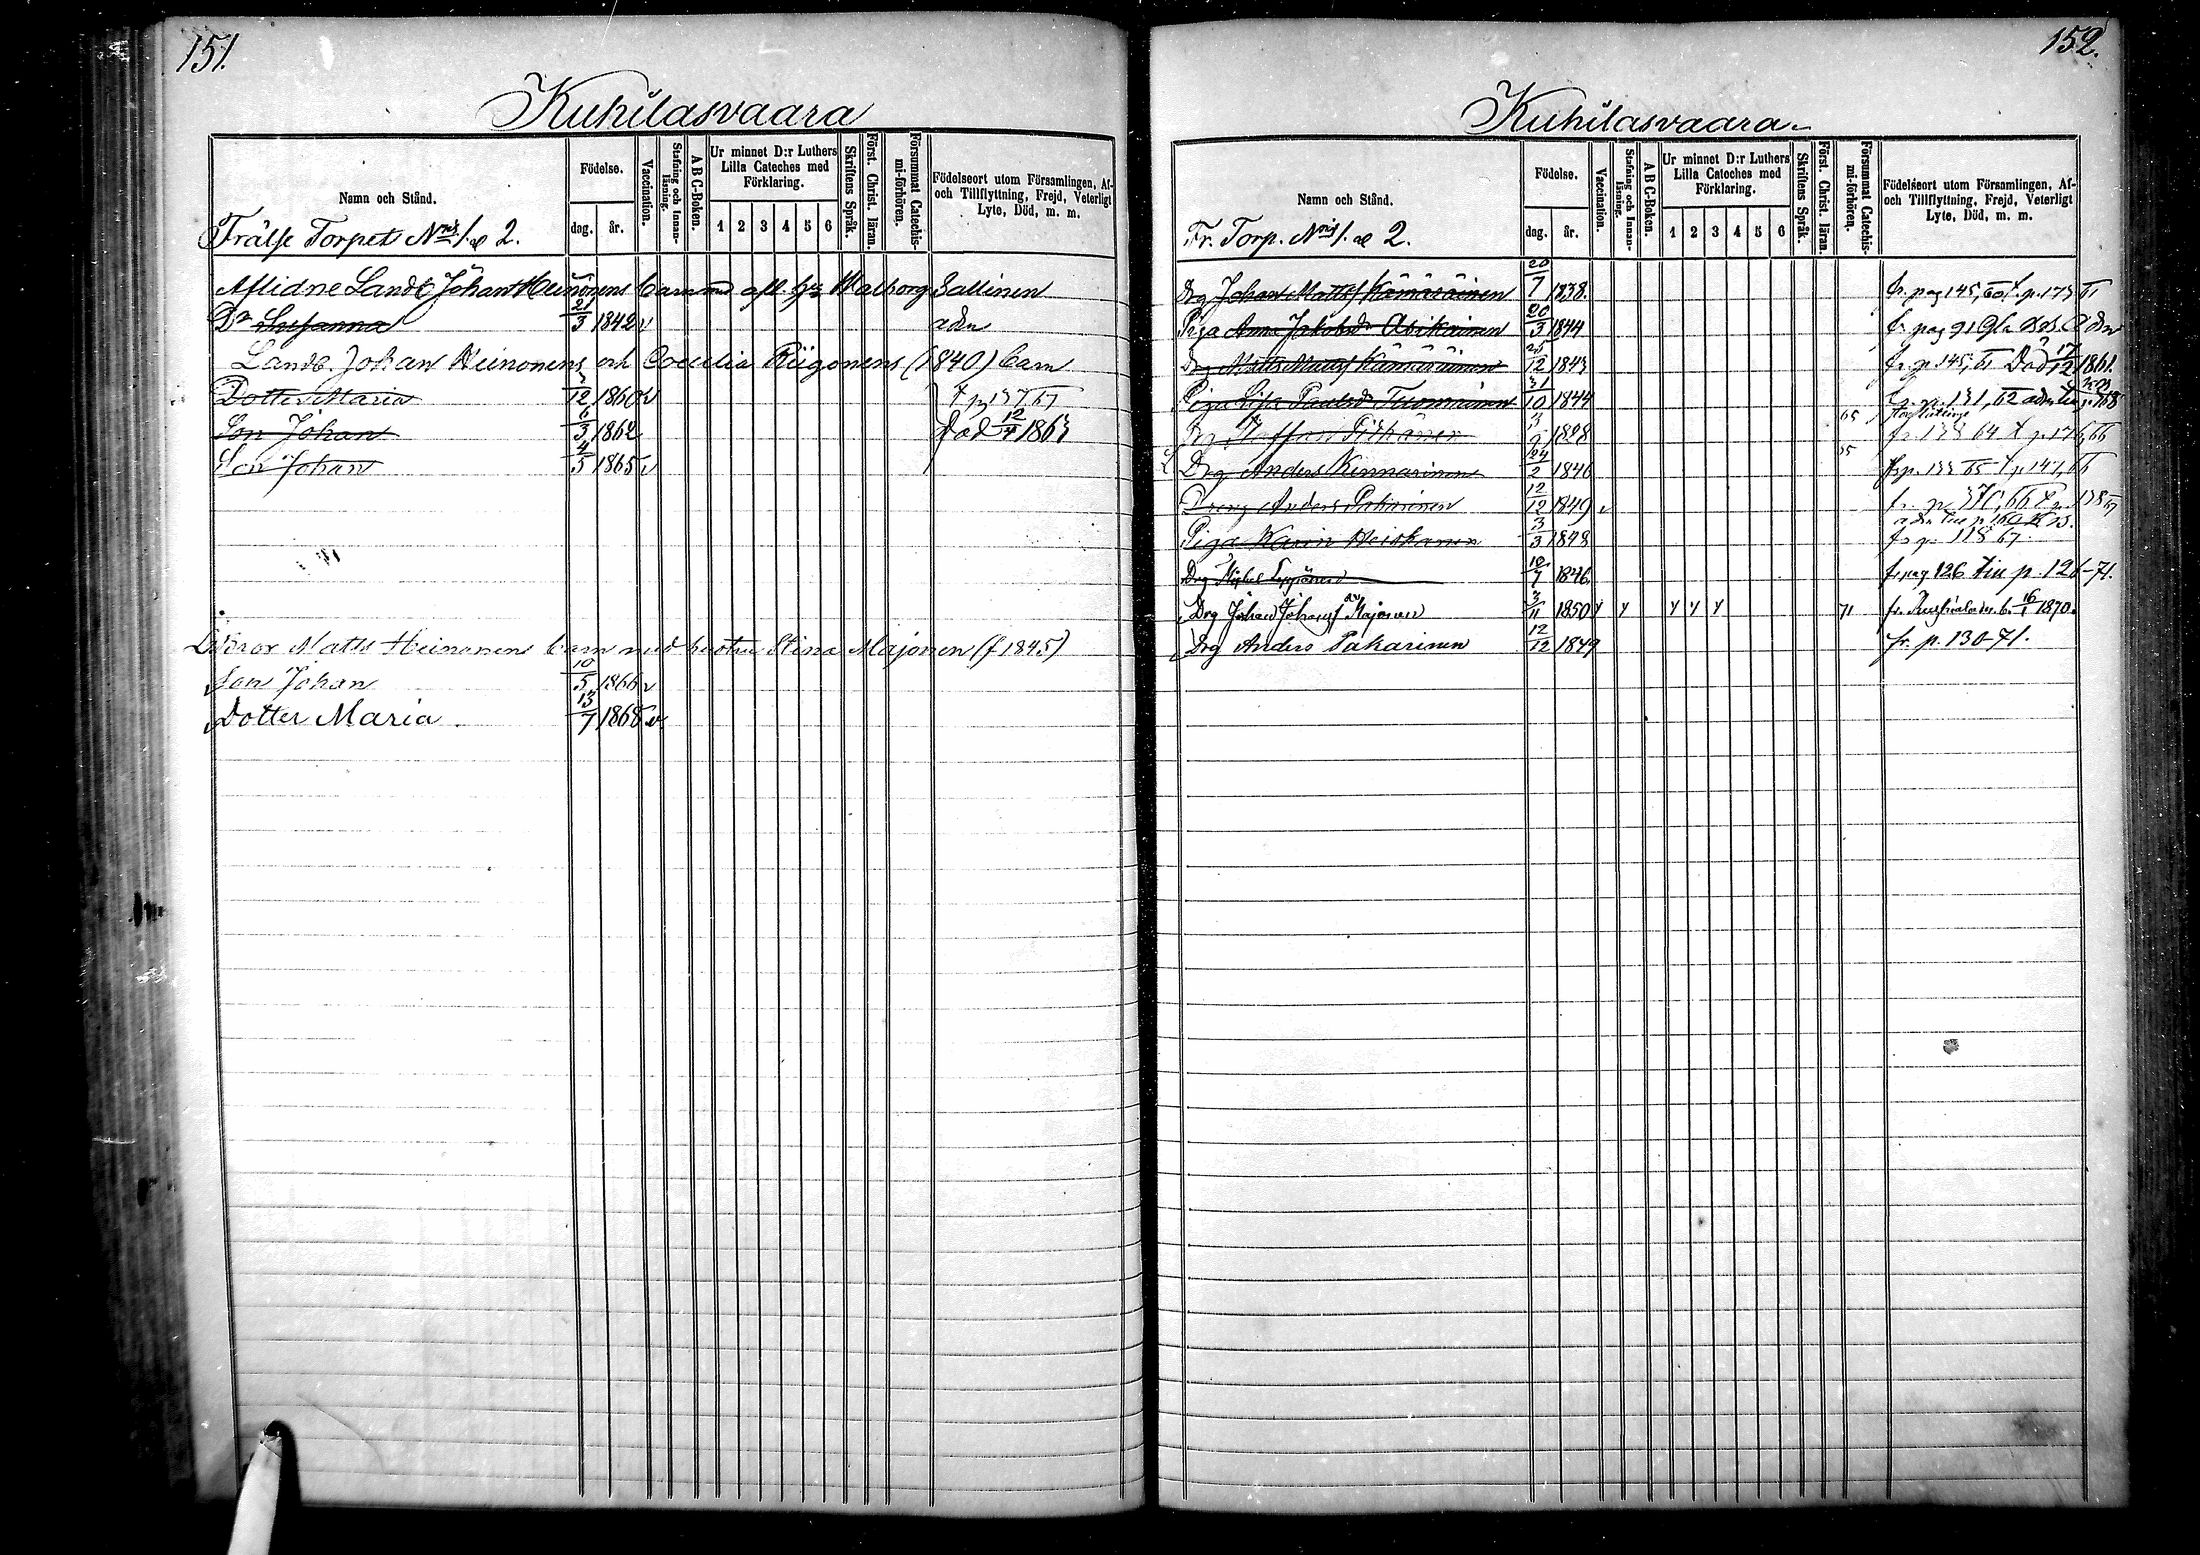 151.
Kuhilasvaara
Namn och Stånd.
Födelse.
dag. år.
Vaccination.
Stafning och Innan-läsning.
A B C-Boken.
Ur minnet D:r Luthers Lilla Cateches med Förklaring.
1 2 3 4 5 6
Skriftens Språk.
Först. Christ. läran.
Försummat Catechis-mi-förhören.
Födelseort utom Församlingen, Af- och Tillflyttning, Frejd, Veterligt Lyte, Död, m. m.
Frälse Torpet N:ris 1. æ 2.
Aflidne Landb Johan Heinonens barn med afl. Walborg Sallinen
Dr Susanna 21/3 1842 v
Landb. Johan Heinonens och Coecilia Riigonens (1840) barn
Dotter Maria 2/12 1860 v
Son Johan 6/3 1862 Död 12/4 1863
Son Johan 4/5 1865 v
Bror Matts Heinonens barn med hustru Stina Majonen (f 1845)
Son Johan 10/5 1866 v
Dotter Maria. 13/7 1868 v.
152.
Kuhilasvaara
Namn och Stånd.
Födelse.
dag. år.
Vaccination.
Stafning och Innan-läsning.
A B C-Boken.
Ur minnet D:r Luthers Lilla Cateches med Förklaring.
1 2 3 4 5 6
Skriftens Språk.
Först. Christ. läran.
Försummat Catechis-mi-förhören.
Födelseort utom Församlingen, Af- och Tillflyttning, Frejd, Veterligt Lyte, Död, m. m.
Fr. Torp. N:ris 1. æ 2.
Drg Johan Matts Kämäräinen 20/7 1838. fr. pag 145, 60
Piga Anna Jakobsdr Asikainen 20/3 1844 fr. pag 91
Drg Matts Matts Kämäräinen 25/12 1843 fr. p. 145, 61 Död 17/12 1861.
Piga Lisa Paulsdr Tuominen 31/10 1844 fr. p. 131, 62
Staffan Pitkänen 1828 65 fr. 138 64
Drg Anders Kinnarinen 24/2 1846 fr p. 133 65 p 147, 66
Dreng Anders Pakarinen 12/12 1849 v
Piga Karin Heiskanen 3/3 1848 fr p. 118 67.
Drg Leppänen 10/7 1846. fr. pag 126 till p. 126-71.
Drg Johan Johans Majonen 3/11 1850 71 16/1 1870.
Drg Anders Pakarinen 12/12 1849 fr. p. 130-71.